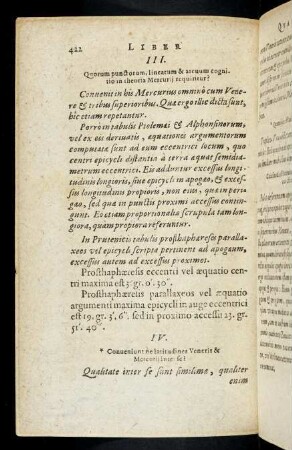 422 LIBER
III.
Quorum punctorum, linearum & arcuum cogni
tio in theoria Mercurij requiritur?
Convenit in his Mercurius omninò cum Vene
re & tribus superioribus. Quæ ergo illic dicta sunt,
hîc etiam repetantur.
Porrò in tabulis Ptolemæi & Alphonsinorum,
vel ex eis derivatis, æquationes argumentorum
computatæ sunt ad eum eccentrici locum, quo
centri epicycli distantia à terra æquat semidia-
metrum eccentrici. Eis adduntur excessus longi-
tudinis longioris, sive epicycli in apogæo, & exces-
sus longitudinis propioris, non eius, quæ in peri-
gæo, sed quæ in punctis proximi accessus contin-
gunt. Eo etiam proportionalia scrupula tam lon-
giora, quam propiora referuntur.
In Prutenicis tabulis prosthaphæresis parallaxe-
os vel epicycli scriptæ pertinent ad apogæum,
excessus autem ad excessus proximos.
Prosthaphæresis eccentri vel æquatio cen-
tri maxima est 3. gr. 0'. 30''.
Prosthaphæreus parallaxeos vel æquatio
argumenti maxima epicycli in auge eccentrici
est 19. gr. 3'. 6''. sed in proximo accessu 23. gr.
51'. 40''.
IV.
* Conveniunt ne latitudines Veneris &
Mercurii inter se?
Qualitate inter se sunt similimæ, qualiter
enim